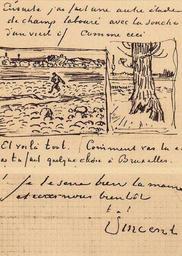 Ensuite j'ai fait une autre étude
de champ labouré avec la souche
d'un vieil if comme ceci
Et voilà tout. Comment vas tu
as tu fait quelque chose à Bruxelles.
Je te serre bien la main
et à toi
Vincent